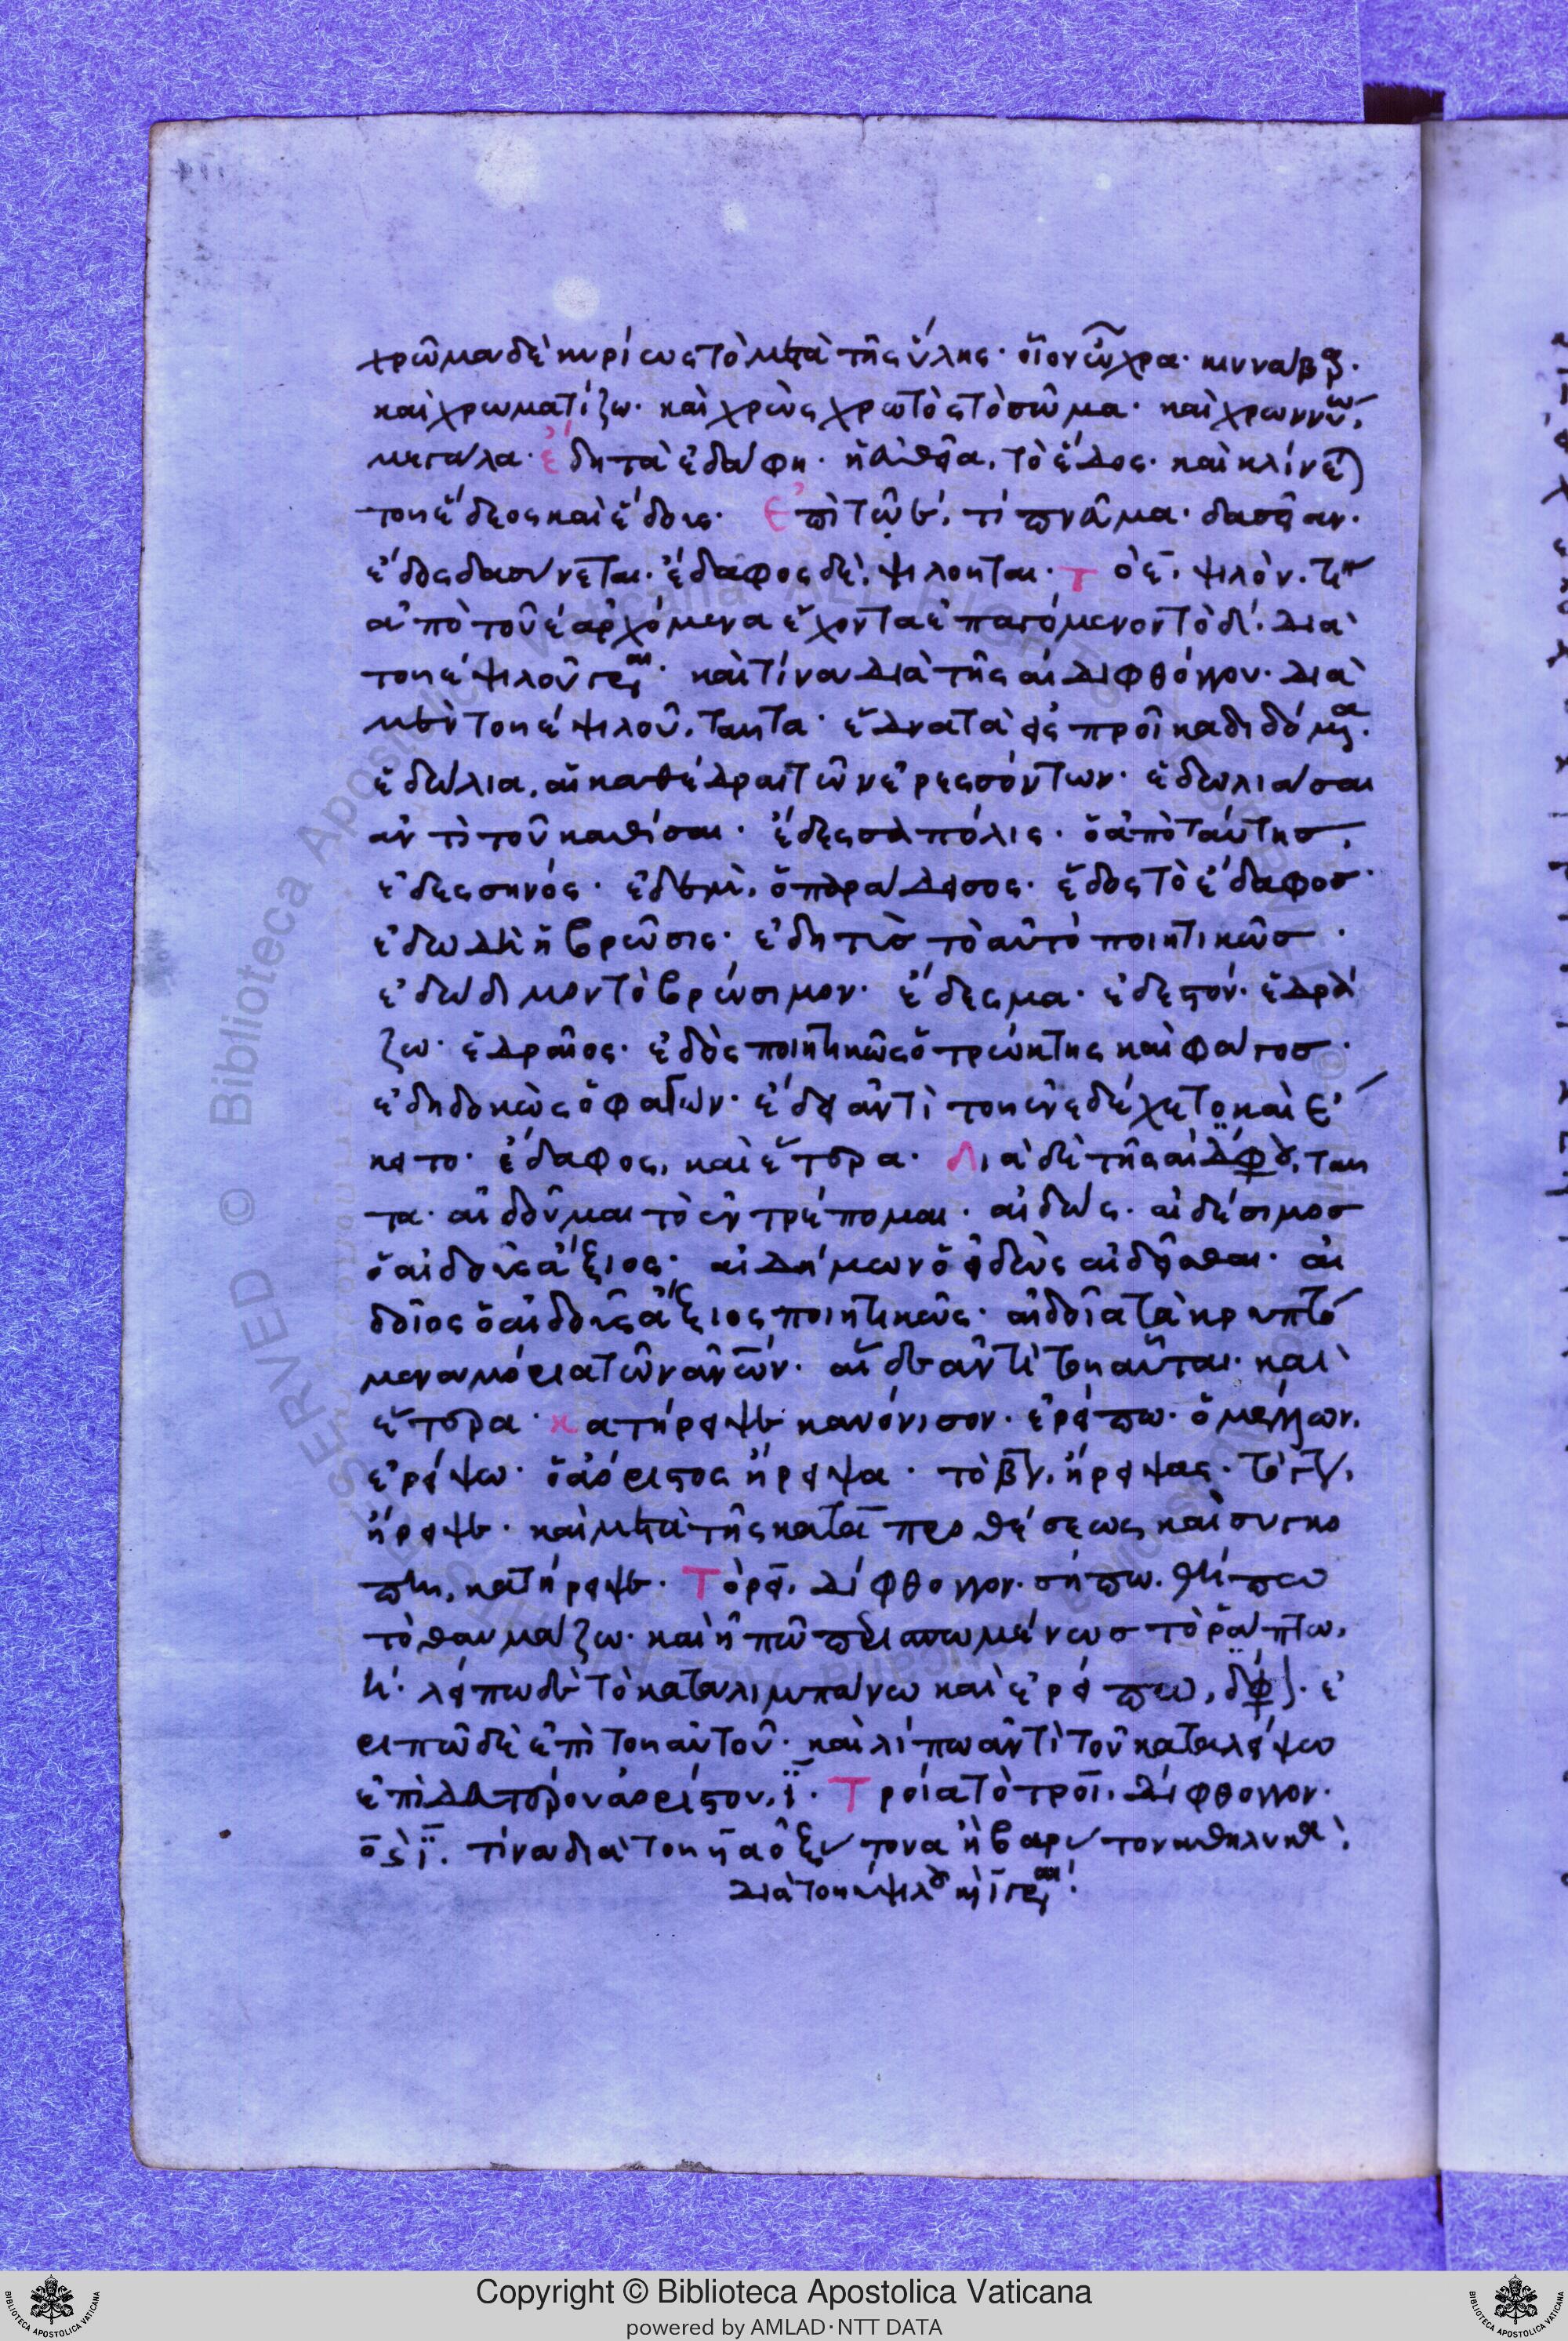 χρῶμα δὲ κυρίως τὸ μετὰ τῆς ὕλης· οἷον ὤχρα· κιννάβαρ.
καὶ χρωματίζω· καὶ χρὼς χρωτὸς τὸ σῶμα· καὶ χρωννύω.
μεγάλα· ἕδη τὰ ἐδάφη· τὸ ἕδος· καὶ κλίνεται
τοῦ ἕδεος καὶ ἕδους· Ἐπὶ τῶ τί πνεῦμα· δασεῖαν·
ἕδος δασύνεται· ἔδαφος δὲ, ψιλοῦται· τὸ ε, ψιλόν· τὰ
ἀπὸ τοῦ ε ἀρχόμενα ἔχοντα ἐπαγόμενον τὸ δ, διὰ
τοῦ ε ψιλοῦ γράφεται· καὶ τίνα διὰ τῆς αι διφθόγγου· διὰ
μὲν τοῦ ε ψιλοῦ, ταῦτα· ἕδνα τὰ εἰς προῖκα διδόμενα.
ἑδώλια, αἱ καθέδραι τῶν ἐρεσσόντων· ἑδωλιάσαι
ἀντὶ τοῦ καθίσαι· ἔδεσσα πόλις· ὁ ἀπὸ ταύτης,
ἐδεσηνός· ἐδὲμ, ὁ παράδεισος· ἕδος τὸ ἔδαφος·
ἐδωδὴ ἡ βρῶσις· ἐδητὺς τὸ αὐτὸ ποιητικῶς·
ἐδώδιμον τὸ βρώσιμον· ἔδεσμα· ἐδεστόν· ἑδρά
ζω· ἑδραῖος· ἐδὸς ποιητικῶς ὁ τρώκτης καὶ φάγος·
ἐδηδοκὼς ὁ φαγών· ἔδεκτο ἀντὶ τοῦ ἐνεδέχετο καὶ ἐ
κειτο· ἔδαφος, καὶ ἕτερα· Διὰ δὲ τῆς αι διφθόγγου, ταῦ
τα· αἰδοῦμαι τὸ ἐντρέπομαι· αἰδώς· αἰδέσιμος
ὁ αἰδοῦς ἄξιος· αἰδήμων ὁ εἰδὼς αἰδεῖσθαι· αἰ
δοῖος ὁ αἰδοῦς ἄξιος ποιητικῶς· αἰδοῖα τὰ κρυπτό
μενα μόρια τῶν ἀνθρώπων· αἵδε ἀντὶ τοῦ αὗται· καὶ
ἕτερα· κατήρειψε κανόνισον· ἐρείπω· ὁ μέλλων,
ἐρείψω· ὁ ἀόριστος ἤρειψα· τὸ βον, ἤρειψας· τὸ γον,
ἤρειψε· καὶ μετὰ τῆς κατὰ προθέσεως καὶ συγκο
πὴν, κατήρειψε· Τὸ ρει, δίφθογγον· σήπω· θήπω
τὸ θαυμάζω· καὶ ἠπῶ περισπωμένως τὸ ῥάπτω,
η· λείπω δὲ τὸ καταλιμπάνω καὶ ἐρείπω, δίφθογγον· ἐ
ριπῶ δὲ ἐπὶ τοῦ αὐτοῦ· καὶ λίπω ἀντὶ τοῦ καταλείψω
ἐπὶ δευτέρου ἀορίστου, ϊ· Τροία τὸ τροι, δίφθογγον·
τίνα διὰ τοῦ ηα ὀξύτονα ἢ βαρύτονα θηλυκὰ,
διὰ τοῦ ψιλοῦ καὶ ι γράφεται·
Copyright © Biblioteca Apostolica Vaticana
powered by AMLAD·NTT DATA